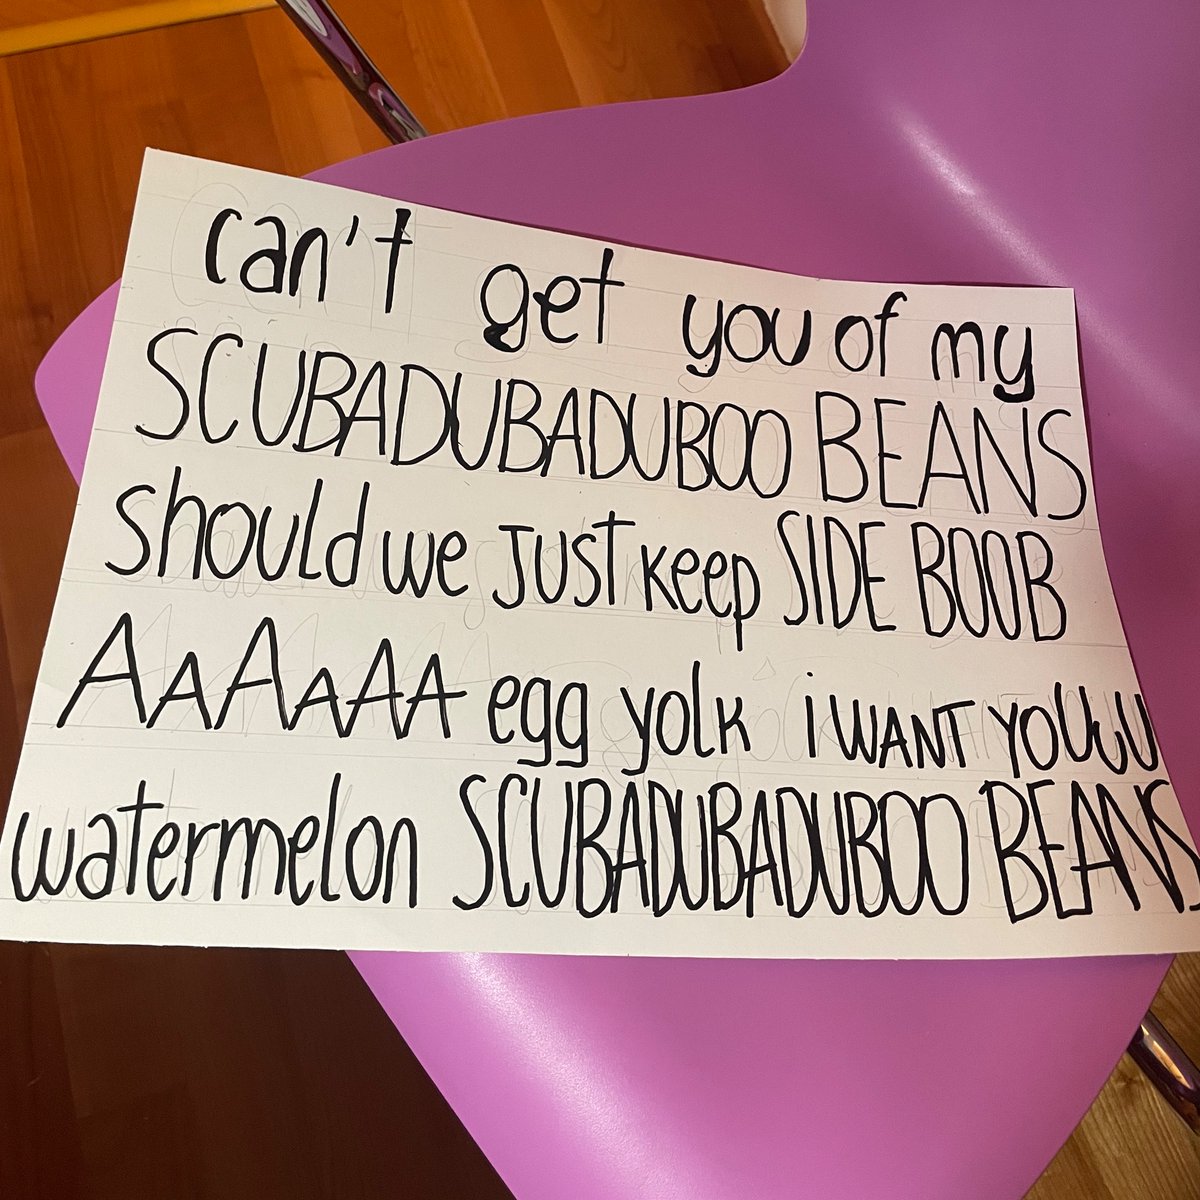 can't get you of my
SCUBADUBADUBOO BEANS
should we JUST keep SIDE BOOB
AAAAAAA egg yolk i WANT YOUUU
watermelon SCUBADUBADUBOO BEANS